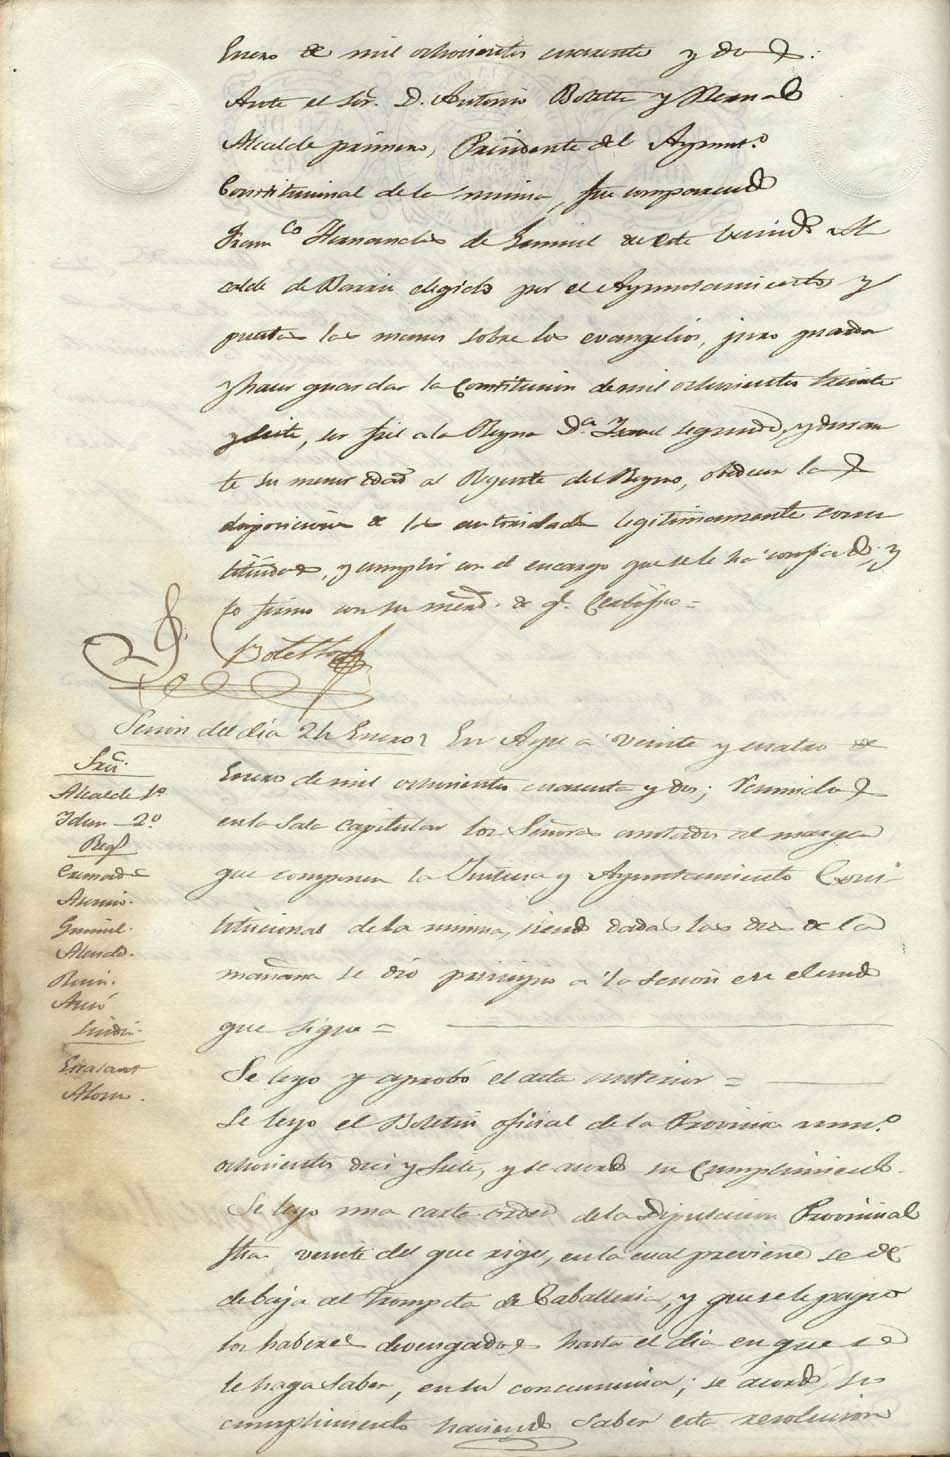 Enero de mil ochocientos cuarenta y dos
Ante el Sor. D. Antonio Botella y Bernab
Alcalde primero, Presidente del Ayunto.
Constitucional de la misma, fue comparecido
Franco. Hernandes de Gumiel de este vecind.º Al
calde de Barrio elegido por el Ayuntamiento, y
puestas las manos sobre los evangelios, juro guardar
y hacer guardar la Constitucion de mil ochocientos treinta
y siete, ser fiel a la Reyna Dª. Isavel segunda, y duran
te su menor edad al Regente del Reyno, obedecer las
disposiciones de las autoridades legitimamente cons
tituidas, y cumplir con el encargo que se le ha confiado; y
lo firmo con su merd. de q. Certifico =
Botella
Sesion del dia 24 Enero
En Aspe a veinte y cuatro de
Enero de mil ochocientos cuarenta y dos; Reunidos
en la Sala Capitular los Señores anotados al margen
que componen la Justicia y Ayuntamiento Cons-
titucional de la misma, siendo dadas las dies de la
mañana se dio principio a la sesion en el modo
que sigue =
Sres.
Alcalde 1º
Idem 2º
Regs.
Cremades
Asensio.
Gumiel.
Alcaldo.
Sindi.
Alonso.
Se leyo y aprobó el acta anterior =
Se leyo el Boletin oficial de la Provincia num.º
ochocientos dies y siete, y se acordo su cumplimiento.
Se leyo una carta orden de la Diputacion Provincial
fha. veinte del que rige, en la cual previene se dé
de baja al trompeta de Caballeria, y que se le pagen
los haberes devengados hasta el dia en que se
le haga saber, en su concecuencia; se acordó su
cumplimiento haciendo saber esta resolucion